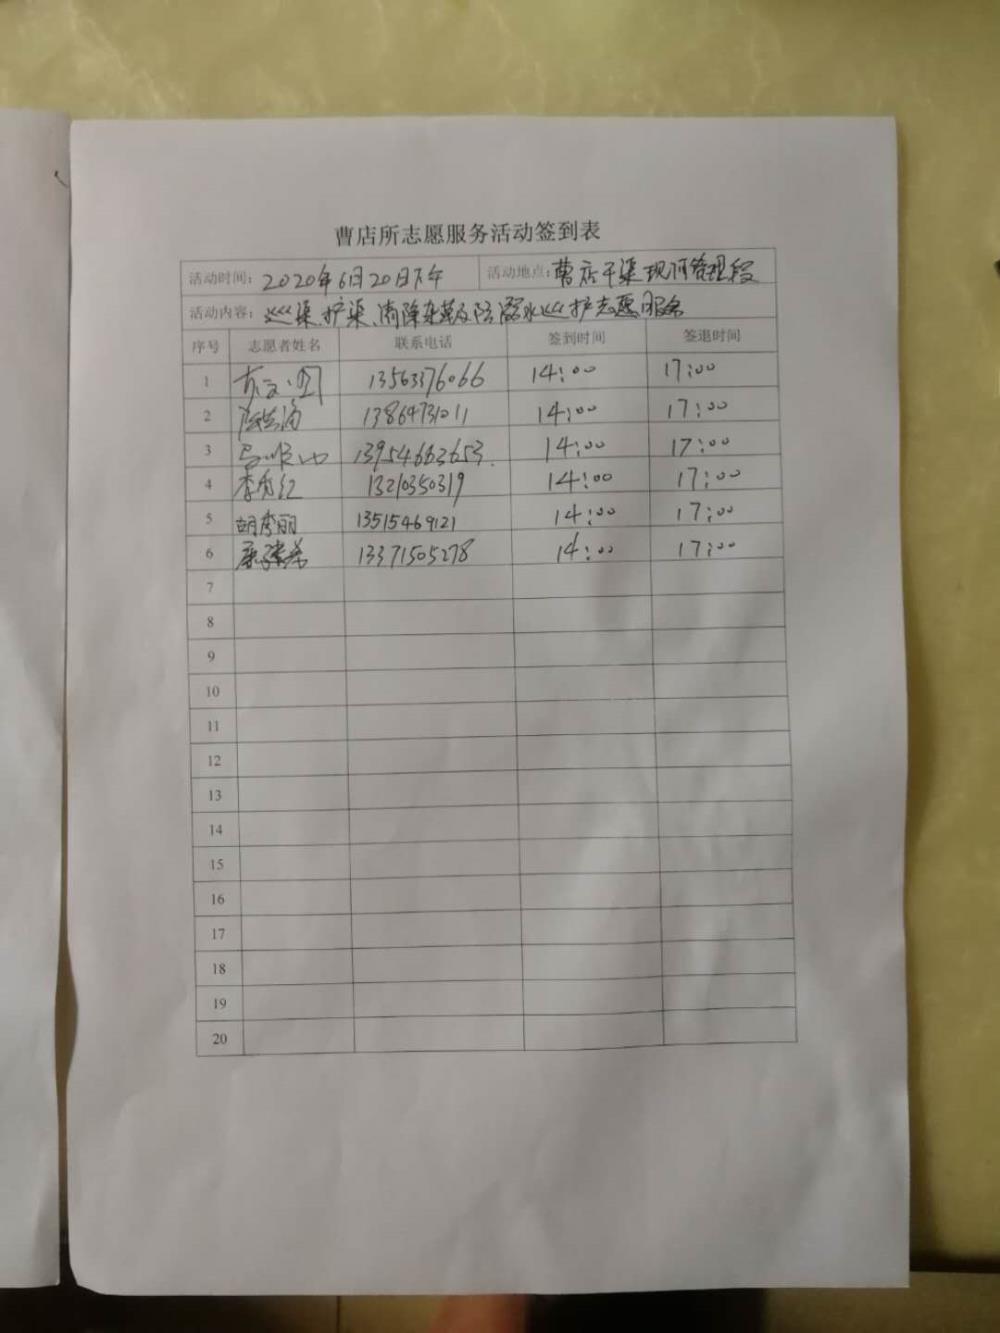 曹店所志愿服务活动签到表
活动时间：2020年6月20日下午 活动地点：曹店干渠现河管理段
活动内容：巡渠、护渠、清除杂草及防溺水巡护志愿服务
序号 志愿者姓名 联系电话 签到时间 签退时间
1 13563376066 14:00 17:00
2 13864731011 14:00 17:00
3 13954663653 14:00 17:00
4 李秀红 13210350319 14:00 17:00
5 胡秀丽 13515469121 14:00 17:00
6 13371505278 14:00 17:00
7
8
9
10
11
12
13
14
15
16
17
18
19
20